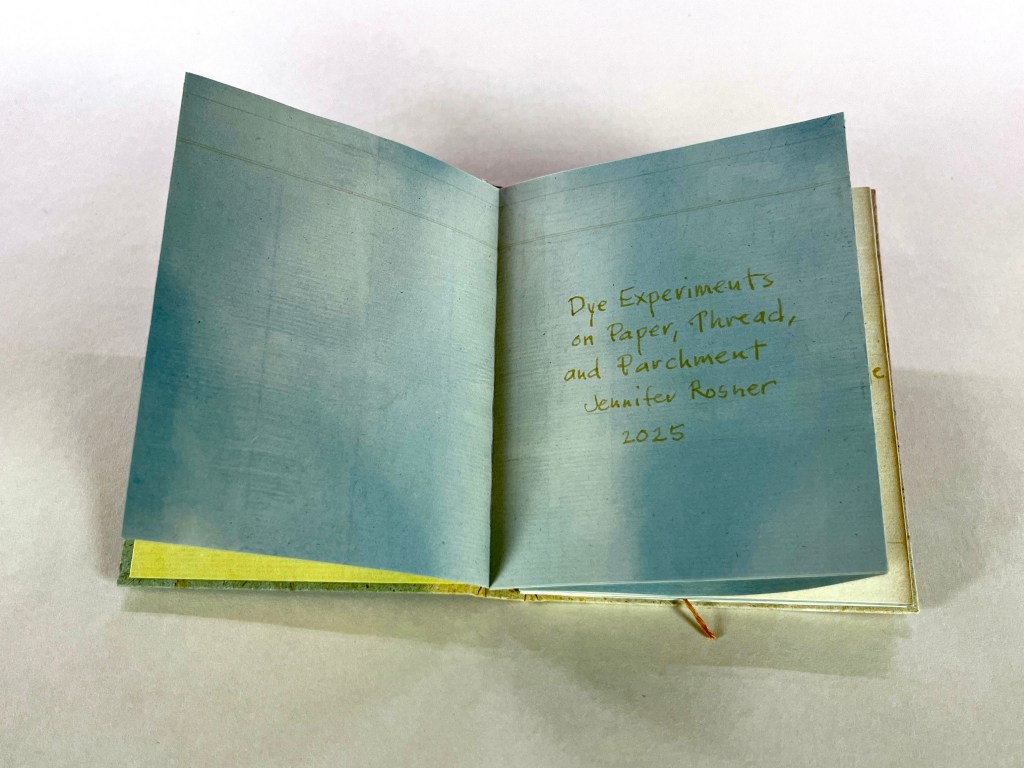 Dye Experiments
on Paper, Thread,
and Parchment
Jennifer Rosner
2025
e